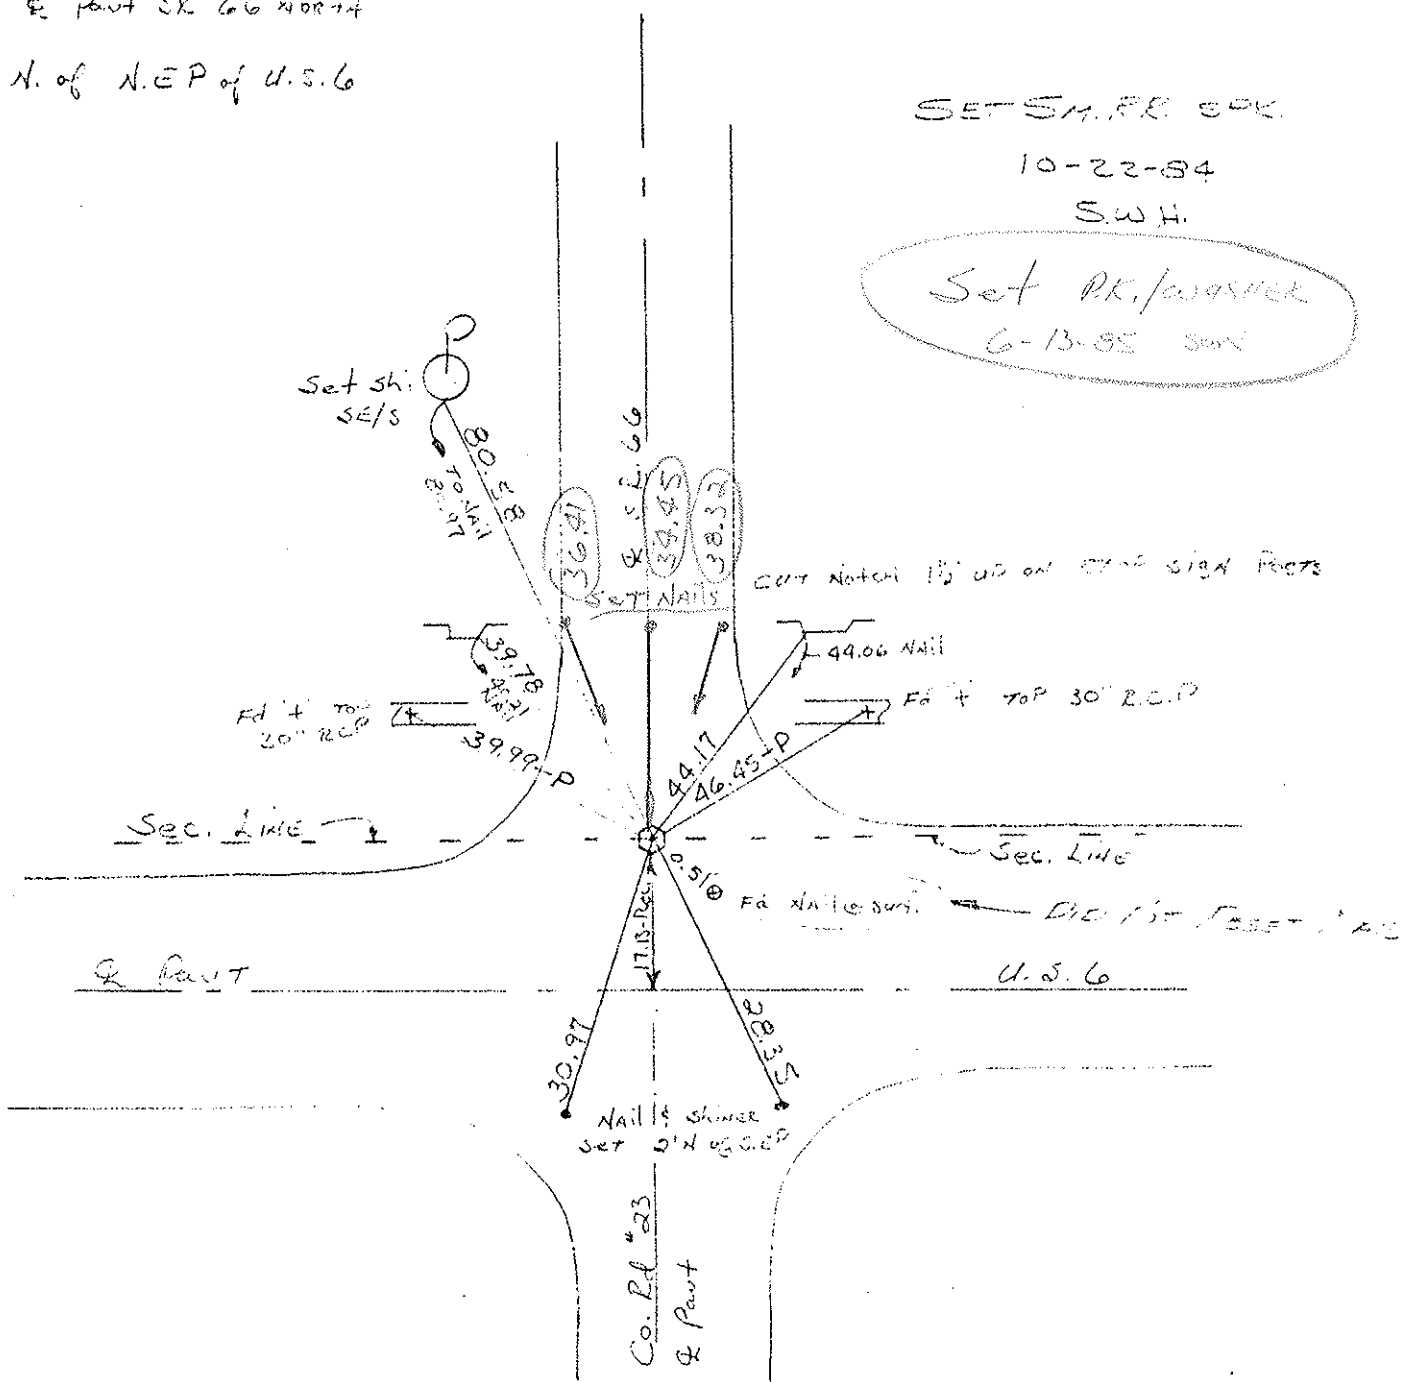 ℄ Pav't SR 66 NORTH
N. of N.E.P of U.S.6
SET SM. R.R. SPK.
10-22-84
S.W.H.
Set P.K./WASHER
6-13-85
Set Sh.
SE/S
80.58
TO NAIL
36.41
℄ S.R. 66
34.45
38.32
SET NAILS
CUT Notch 1½' UP ON sign Posts
39.78
NAIL
44.06 NAIL
Fd + TOP
30" RCP
39.99-P
44.17
46.45-P
Fd + TOP 30" R.C.P
Sec. LINE
Sec. LINE
0.51
Fd Nail @ Surf.
17.13-Rec.
℄ Pav'T
U.S. 6
30.97
28.35
NAIL & Shiner
Set 2'N of S.EP
Co. Rd #23
℄ Pav't